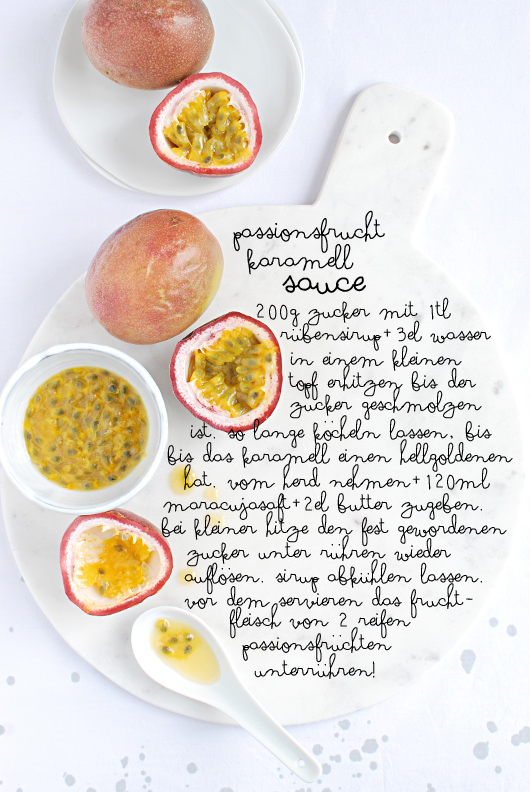 passionsfrucht
karamell
sauce
200g zucker mit 1tl
rübensirup+3el wasser
in einem kleinen
topf erhitzen bis der
zucker geschmolzen
ist. so lange köcheln lassen, bis
bis das karamell einen hellgoldenen
hat. vom herd nehmen+120ml
maracujasaft+2el butter zugeben.
bei kleiner hitze den fest gewordenen
zucker unter rühren wieder
auflösen. sirup abkühlen lassen.
vor dem servieren das frucht-
fleisch von 2 reifen
passionsfrüchten
unterrühren!